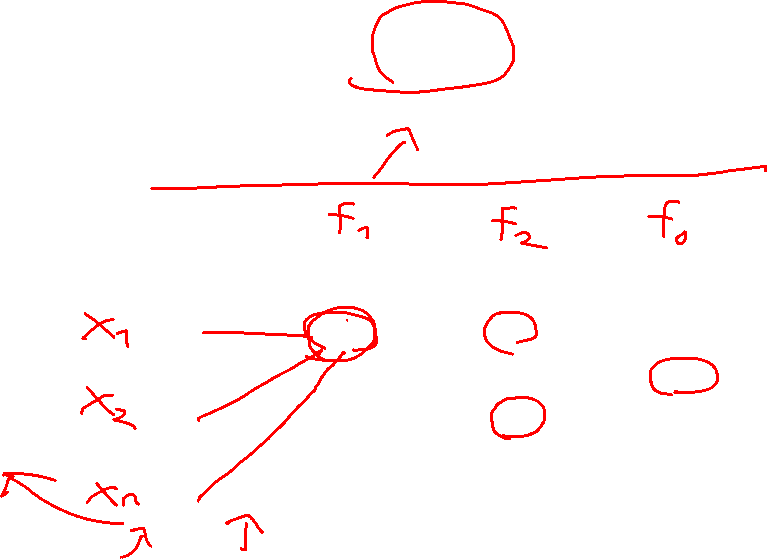 f₁ f₂ f₀
x₁
x₂
xn